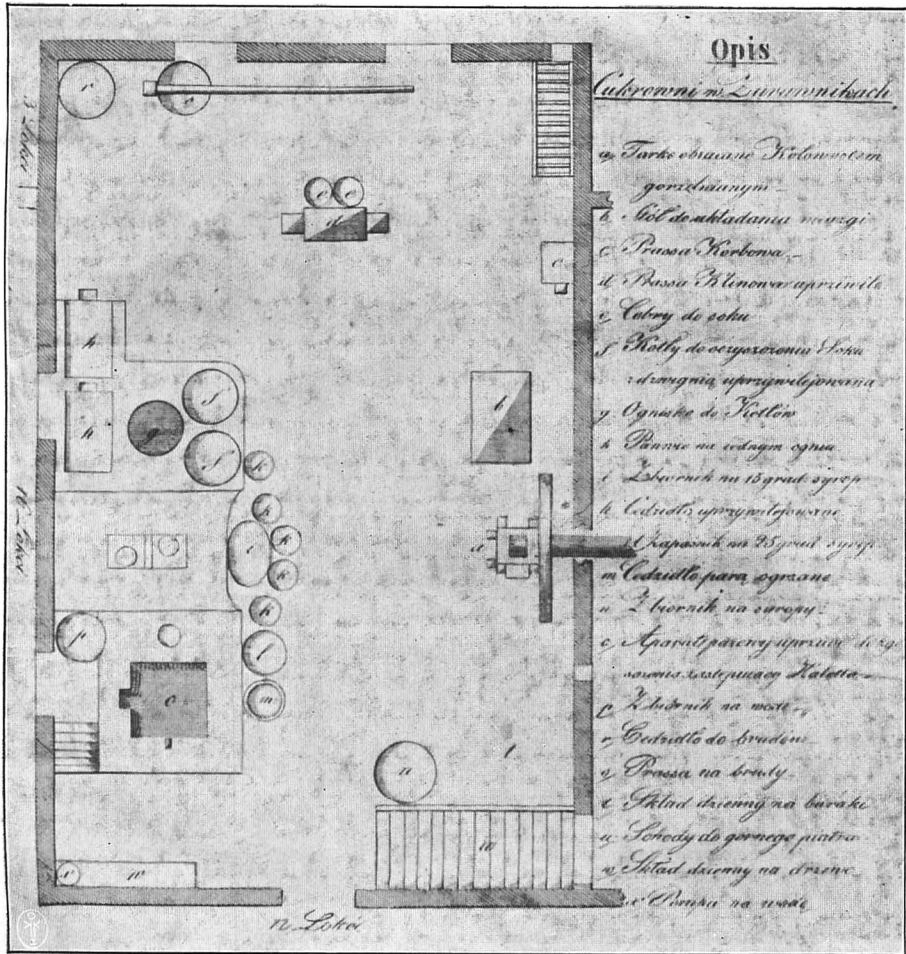 Opis
Cukrowni w Żurawnikach
a, Tarke obracane Kołowrotem
gorzelnianym
b, Stół do układania miazgi
c, Prassa Korbowa
d, Prassa Klinowa uprzywile
e, Cebry do soku
f, Kotły do oczyszczenia Soku
z dzwignią uprzywilejowana
g, Ognisko do Kotłów
h, Pannwie na jednym ogniu
i, Zbiornik na 15 grad. syrop
k, Cedzidła uprzywilejowane
Zapasnik na 25 grad. syrop
m, Cedzidło parą ogrzane
n, Zbiornik na syropy
o, Aparat parowy uprzyw.
zastępujący
p, Zbiornik na wodę
r, Cedzidło do brudów
s, Prassa na brudy
t, Skład dzienny na buraki
u, Schody do gornego piatra
w, Skład dzienny na drzewo
x, Pompa na wodę
3 Łokci
12 Łokci
r
s
e
e
d
c
h
h
g
f
f
b
k
k
k
k
k
i
a
p
l
o
m
n
t
w
x
w
n Łokci